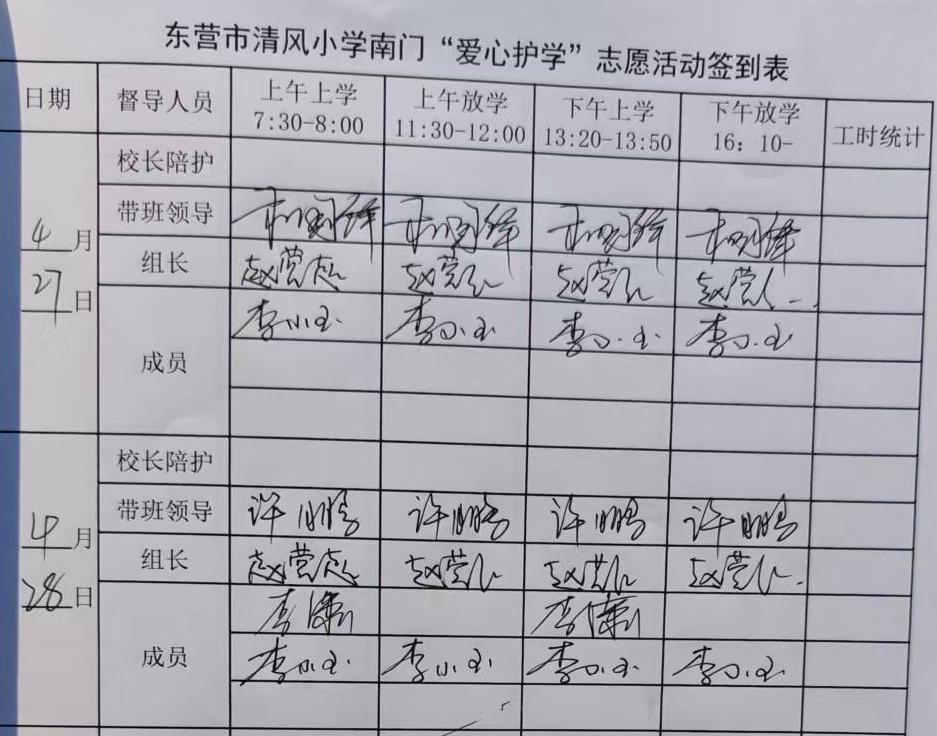 东营市清风小学南门“爱心护学”志愿活动签到表
日期 督导人员 上午上学 7:30-8:00 上午放学 11:30-12:00 下午上学 13:20-13:50 下午放学 16：10- 工时统计
4月27日
校长陪护
带班领导
组长 赵营 赵营 赵营 赵营
成员 李小玉 李小玉 李小玉 李小玉
4月28日
校长陪护
带班领导 许鹏 许鹏 许鹏 许鹏
组长 赵营 赵营 赵营 赵营
成员 李 李
李小玉 李小玉 李小玉 李小玉